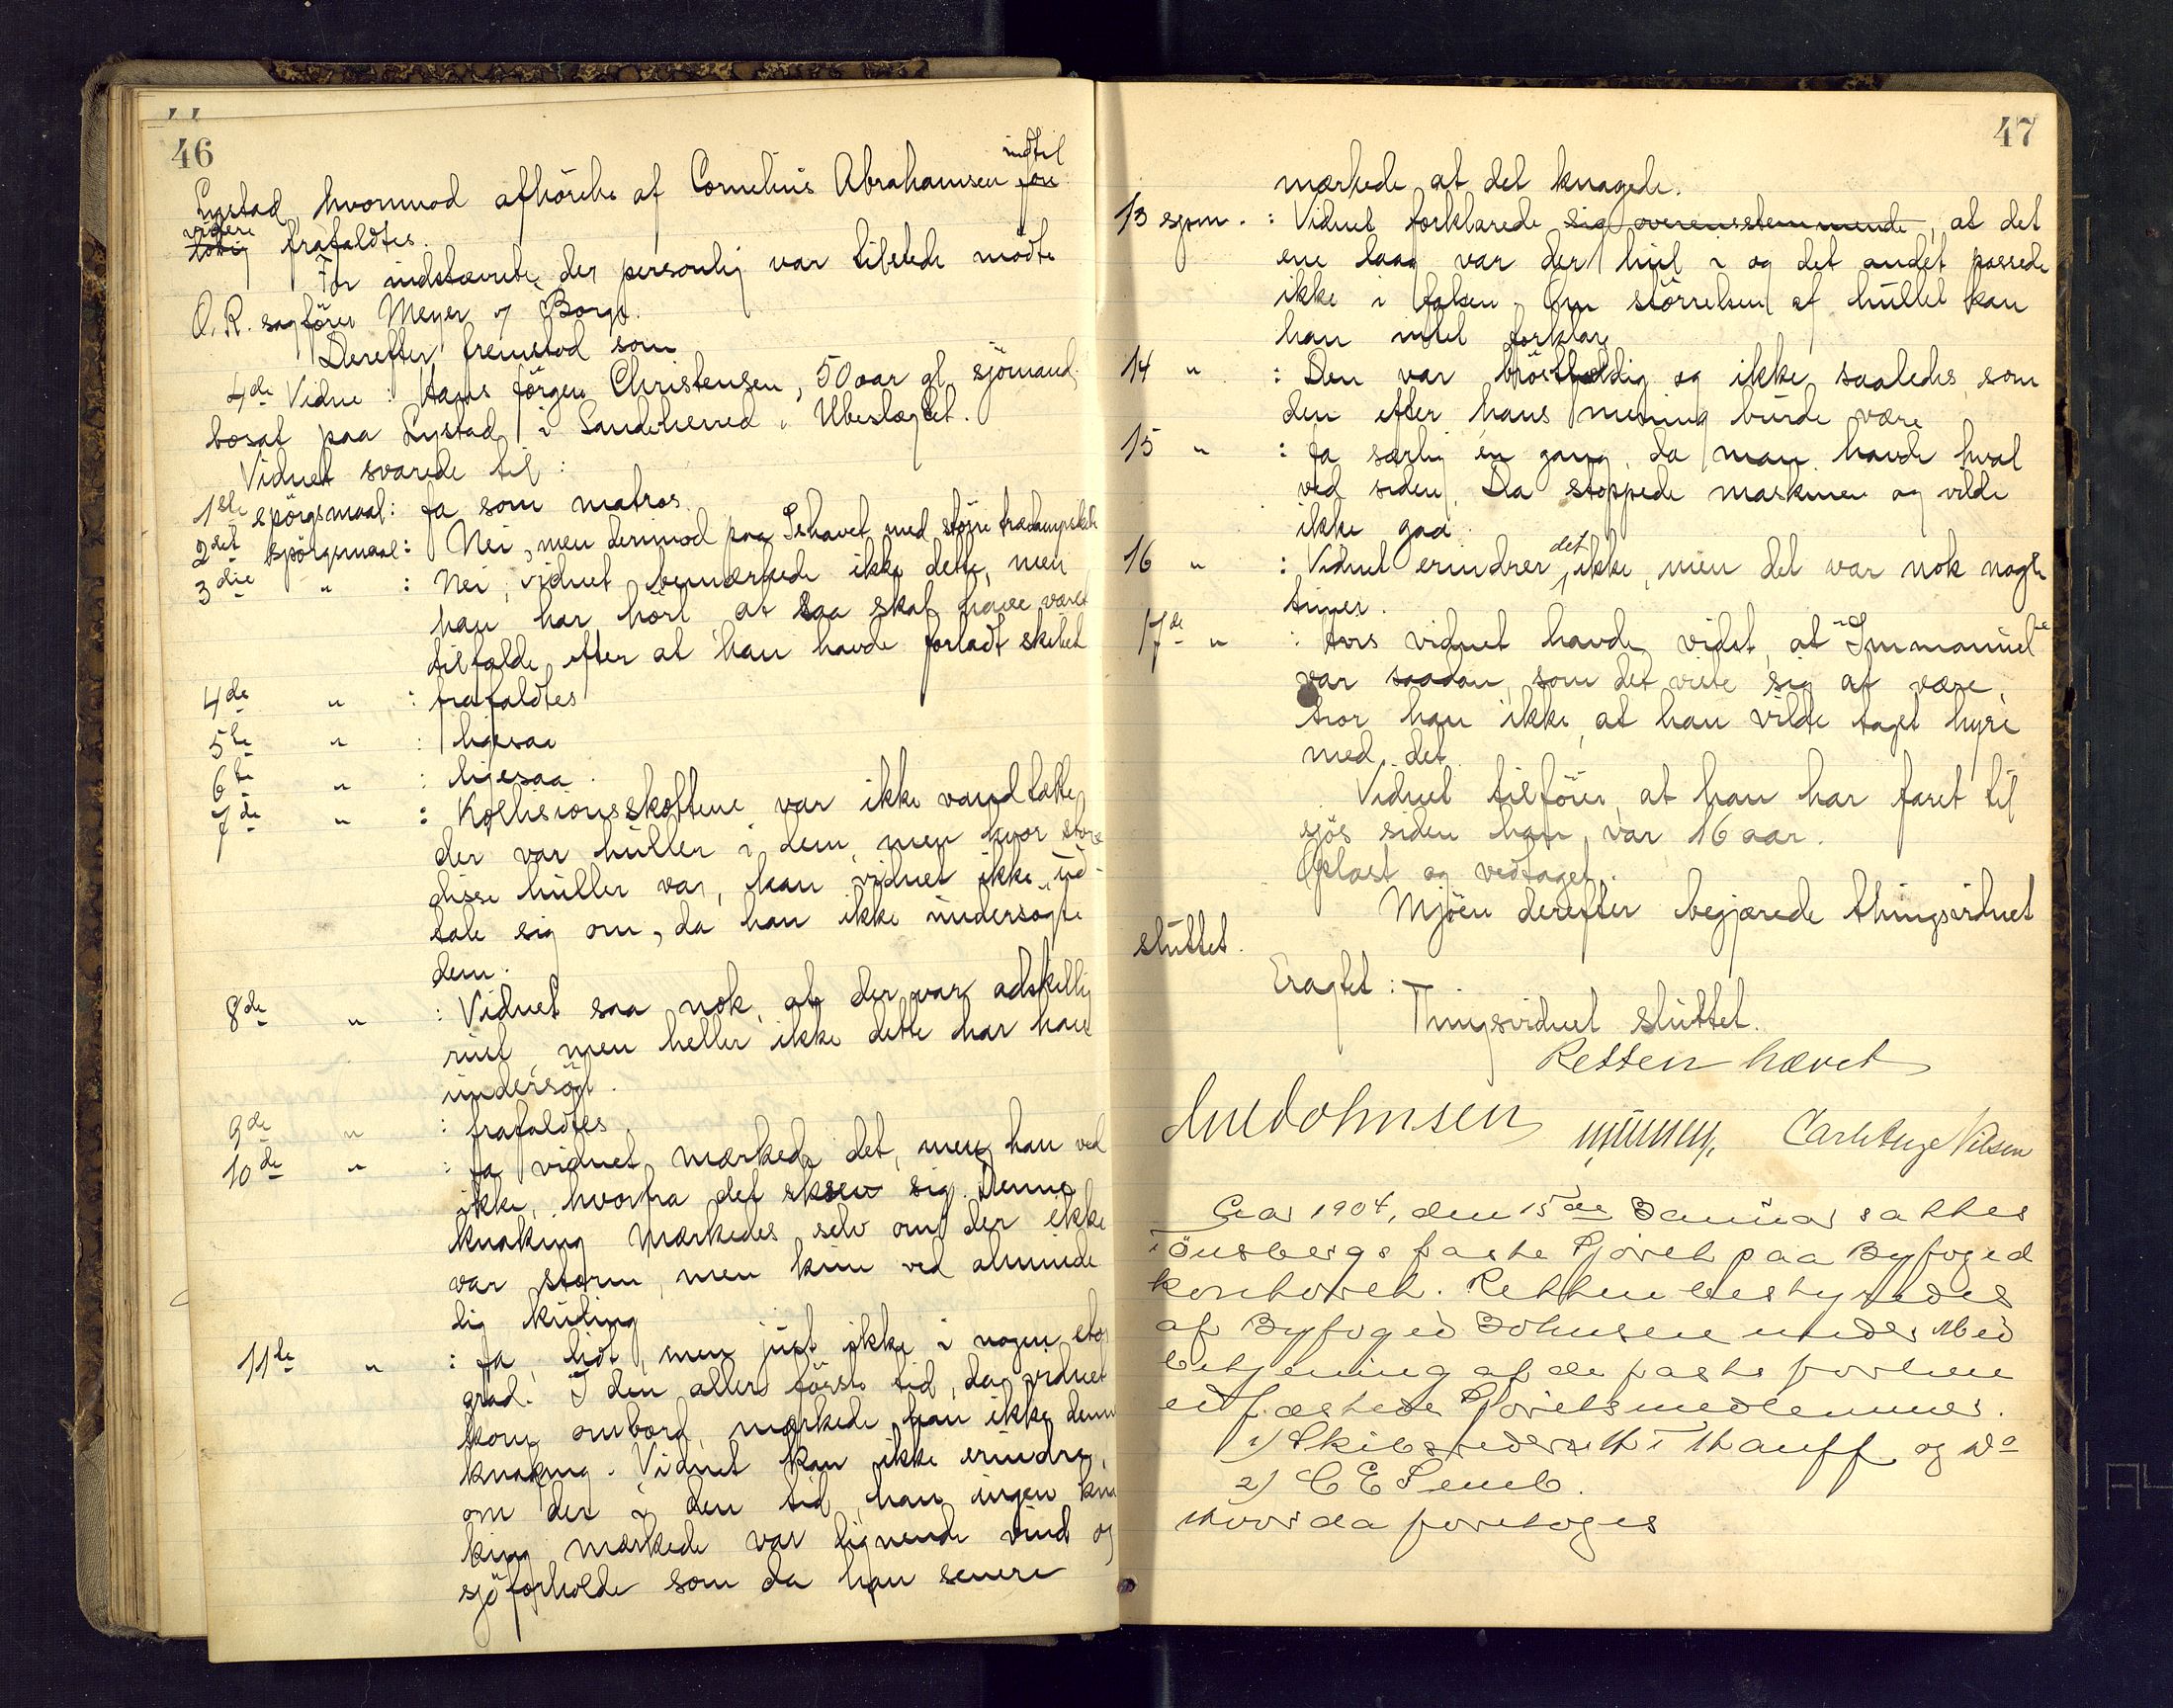 46
Lystad, hvorimod afhörelse af Cornelius Abrahamsen indtil
videre frafaldtes.
For indstævnte, der personlig var tilstede mödte
O.R. sagförer Meyer af Borge.
Derefter fremstod som
4de Vidne: Hans Jörgen Christensen, 50 aar gl. sjömand,
bosat paa Lystad i Sandeherred. Ubeslægtet.
Vidnet svarede til:
1ste spörgsmaal: Ja som matros.
2det spörgsmaal: Nei, men derimod paa Ishavet med större trædampskibe
3die " : Nei, vidnet bemærkede ikke dette, men
han har hört at saa skal have været
tilfælde, efter at han havde forladt skibet
4de " : frafaldtes
5te " : ligesaa
6te " : ligesaa.
7de " : Kollisionsskottene var ikke vandtætte,
der var huller i dem, men hvor store
disse huller var, kan vidnet ikke ud-
tale sig om, da han ikke undersögte
dem.
8de " : Vidnet saa nok, at der var adskillig
rust, men heller ikke dette har han
undersögt.
9de " : frafaldtes.
10de " : Ja vidnet mærkede det, men han ved
ikke, hvorfra det skrev sig. Denne
knaking mærkedes selv om der ikke
var storm, men kun ved alminde
lig kuling
11te " : Ja, lidt, men just ikke i nogen stor
grad. I den aller förste tid, da vidnet
kom ombord, mærkede han ikke denne
knaking. Vidnet kan ikke erindre,
om der i den tid, han ingen kna
king mærkede var lignende vind og
sjöforholde som da han senere
47
mærkede at det knagede.
13 spm. : Vidnet forklarede sig overensstemmende, at det
ene laag var der hul i og det andet passede
ikke i falsen. Om störrelsen af hullet kan
han intet forklare
14 " : Den var bröstfældig og ikke saaledes, som
den efter hans mening burde være
15 " : Ja særlig én gang, da man havde hval
ved siden. Da stoppede maskinen og vilde
ikke gaa.
16 " : Vidnet erindrer det ikke, men det var nok nogle
timer.
17de " : Hvis vidnet havde vidst, at "Immanuel"
var saadan, som det viste sig at være,
tror han ikke, at han vilde taget hyre
med det.
Vidnet tilföier, at han har faret til
sjös siden han var 16 aar.
Oplæst og vedtaget.
Mjöen derefter begjærede thingsvidnet
sluttet.
Eragtet:
Thingsvidnet sluttet.
Retten hævet
Johnsen Carl Aage Nilsen
Aar 1904, den 15de Januar sattes
Tönsbergs faste Sjöret paa Byfoged
kontoret. Retten bestyredes
af Byfoged Johnsen under Med
betjening af de faste forhen
edfæstede Sjöretsmedlemmer.
1) Skibsreder Hauff og Do
2) C E Semb.
Hvorda foretoges